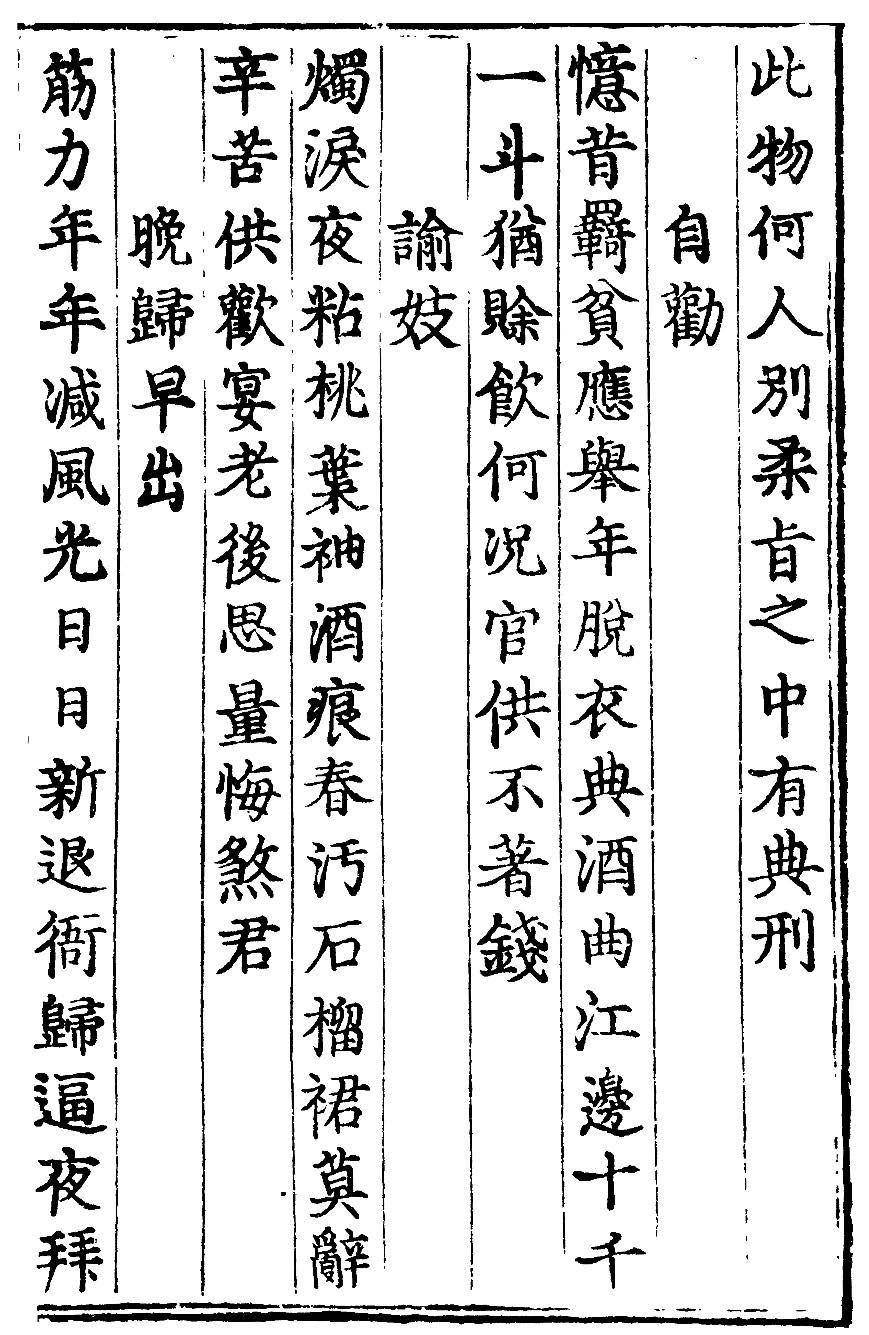 此物何人別柔旨之中有典刑
自勸
憶昔羈貧應舉年脫衣典酒曲江邊十千
一斗猶賖飲何況官供不著錢
諭妓
燭淚夜粘桃葉袖酒痕春汚石榴裙莫辭
辛苦供歡宴老後思量悔煞君
晩歸早出
筋力年年減風光日日新退衙歸逼夜拜